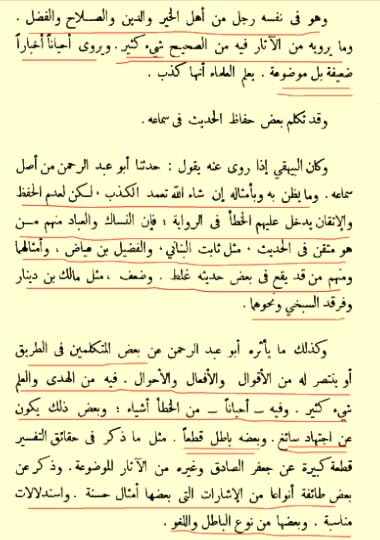 وهو فى نفسه رجل من أهل الخير والدين والصلاح والفضل .
وما يرويه من الآثار فيه من الصحيح شىء كثير . ويروى أحياناً أخباراً
ضعيفة بل موضوعة . يعلم العلماء أنها كذب .
وقد تكلم بعض حفاظ الحديث فى سماعه .
وكان البيهقي إذا روى عنه يقول : حدثنا أبو عبد الرحمن من أصل
سماعه . وما يظن به وبأمثاله إن شاء الله تعمد الكذب ، لكن لعدم الحفظ
والإتقان يدخل عليهم الخطأ فى الرواية ؛ فإن النساك والعباد منهم من
هو متقن فى الحديث ، مثل ثابت البناني ، والفضيل بن عياض ، وأمثالهما
ومنهم من قد يقع فى بعض حديثه غلط . وضعف ، مثل مالك بن دينار
وفرقد السبخي ونحوهما .
وكذلك ما يأثره أبو عبد الرحمن عن بعض المتكلمين فى الطريق
أو ينتصر له من الأقوال والأفعال والأحوال . فيه من الهدى والعلم
شىء كثير . وفيه — أحياناً — من الخطأ أشياء ؛ وبعض ذلك يكون
عن اجتهاد سائغ . وبعضه باطل قطعاً . مثل ما ذكر فى حقائق التفسير
قطعة كبيرة عن جعفر الصادق وغيره من الآثار الموضوعة . وذكر عن
بعض طائفة أنواعا من الإشارات التى بعضها أمثال حسنة . واستدلالات
مناسبة . وبعضها من نوع الباطل واللغو .